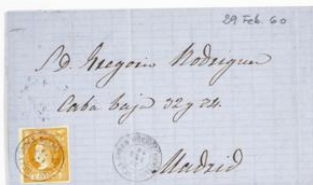 29 Feb. 60
D. Gregorio Rodriguez
Caba baja 32 y 34.
Madrid